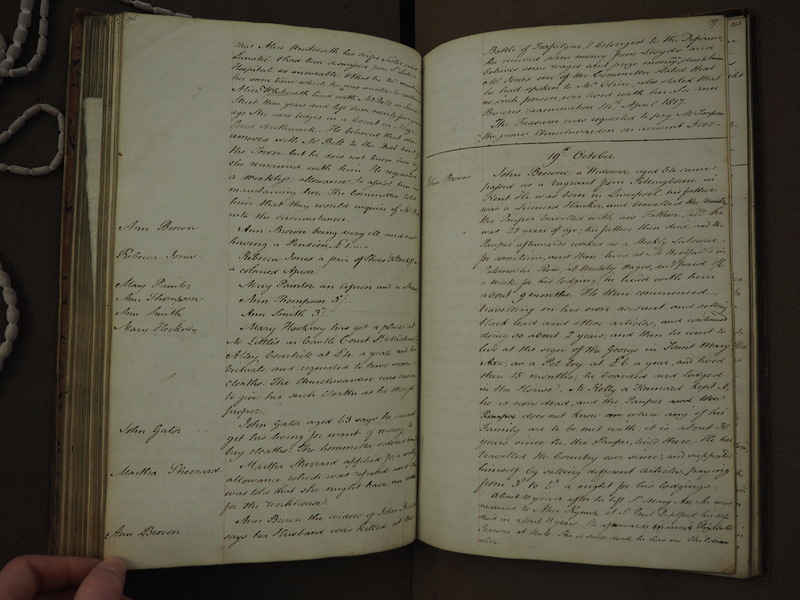 196
that Alice Wentworth his wife's Sister was a
Lunatic & had been discharged from St Lukes
Hospital as incurable, & that he had maintained
her some time which he was unable to continue
Alice Wentworth lived with Mr Bolt in
Street two years and left him nearly
ago She now lodges in a Court in
Southwark. He believed that she
removed with Mr Bolt to the
the Town but he does not know how long
she remained with him He requested
a weekly allowance to assist him in
maintaining her The Committee told
him that they would inquire of Mr Bolt
into the circumstances.
Ann Brown
Ann Brown being very ill and not
having a Pension £1
Rebecca Jones
Rebecca Jones a pair of Shoes
a colored Apron
Mary Painter
Mary Painter an Apron and a
Ann Thompson
Ann Thompson 3/
Ann Smith
Ann Smith 3/
Mary
Mary has got a place at
Mr Little's in Castle Court St Michael's
Alley, Cornhill at £4 a year and her
Victuals, and requested to have some
cloaths. The Churchwarden was desired
to give her such cloaths as he thought
proper.
John Gator
John Gator aged 63 says he cannot
get his living for want of money to
buy cloaths. The Committee ordered him
Martha Sherrard
Martha Sherrard applied for a weekly
allowance which was refused and she
was told that she might have an order
for the Workhouse.
Ann Brown
Ann Brown the widow of John Brown
says her Husband was killed at the
197
Battle of Trafalgar, & belonged to the Defiance
she received some money from Lloyds and
believes some wages and prize money
Mr Jones one of the Committee stated that
he had spoken to Mr Cline, who stated that
no such person had lived with her See Ann
Browns examination 14 April 1817
The Treasurer was requested to pay Mr Simpson
the junior Churchwarden on account £100
19th October
John Browne
John Browne a Widower aged 54 came
passed as a Vagrant from Sittingbourne in
Kent He was born in Liverpool his father
was a Licenced Hawker and travelled the Country
the Pauper travelled with his Father till he
was 23 years of age; his father then died, and the
Pauper afterwards worked as a Weekly Labourer
for sometime, and then lived at Mr in
Paternoster Row, at Weekly Wages, and paid 1/6
a week for his lodging; he lived with him
about 9 months. He then commenced
travelling on his own account and selling
black lead and other articles, and continued
doing so about 2 years, and then he went to
live at the sign of the George in Saint Mary
Axe, as a Pot boy at £6 a year, and lived
there 15 months, he boarded and lodged
in the House. Mr Kelly or Kennard kept it,
he is now dead, and the Pauper
does not know where any of his
Family are to be met with; it is about 30
years since he the Pauper lived there. He has
travelled the Country ever since; and supported
himself by selling different articles, paying
from 3d to 6d a night for his lodgings.
About 10 years after he left St Mary Axe he was
married to Alice at St Paul Deptford his wife
died in about years. He afterwards married Elizabeth
at Hull. She is since dead, he has no Children
alive.